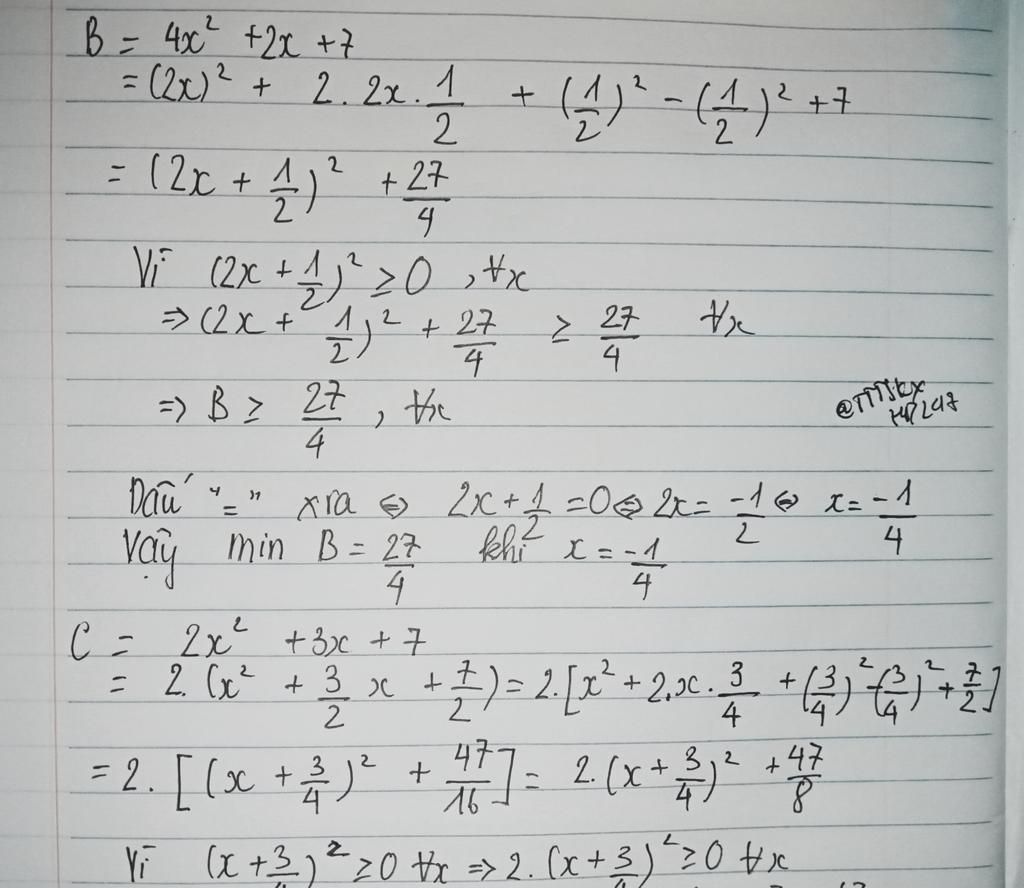 B = 4x² + 2x + 7
= (2x)² + 2 . 2x . 1/2 + (1/2)² - (1/2)² + 7
= (2x + 1/2)² + 27/4
Vì (2x + 1/2)² ≥ 0 , ∀x
⇒ (2x + 1/2)² + 27/4 ≥ 27/4 ∀x
⇒ B ≥ 27/4 , ∀x
Dấu "=" xra ⇔ 2x + 1/2 = 0 ⇔ 2x = -1/2 ⇔ x = -1/4
Vậy min B = 27/4 khi x = -1/4
C = 2x² + 3x + 7
= 2. (x² + 3/2 x + 7/2) = 2. [x² + 2.x . 3/4 + (3/4)² - (3/4)² + 7/2]
= 2. [(x + 3/4)² + 47/16] = 2. (x + 3/4)² + 47/8
Vì (x + 3/4)² ≥ 0 ∀x ⇒ 2. (x + 3/4)² ≥ 0 ∀x